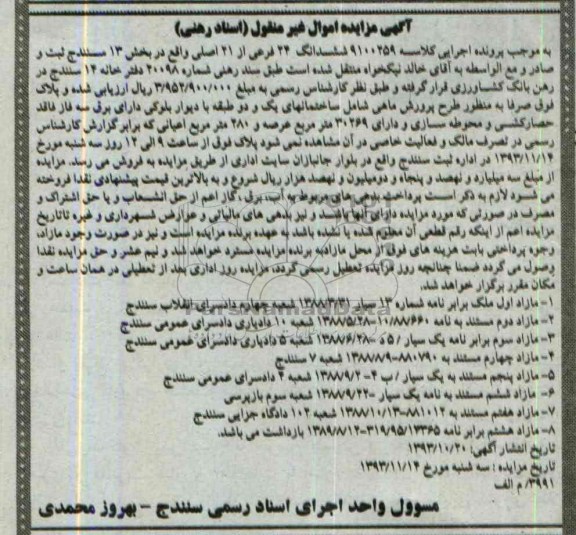 آگهی مزایده اموال غیر منقول (اسناد رهنی)
به موجب پرونده اجرایی کلاسه ۹۱۰۰۲۵۹ ششدانگ ۲۴ فرعی از ۲۱ اصلی واقع در بخش ۱۳ سنندج ثبت و
صادر و مع الواسطه به آقای خالد نیکخواه منتقل شده است طبق سند رهنی شماره ۲۰۰۹۸ دفتر خانه ۱۴ سنندج در
رهن بانک کشاورزی قرار گرفته و طبق نظر کارشناس رسمی به مبلغ ۳/۹۵۲/۹۰۰/۰۰۰ ریال ارزیابی شده و پلاک
فوق صرفا به منظور طرح پرورش ماهی شامل ساختمانهای یک و دو طبقه با دیوار بلوکی دارای برق سه فاز فاقد
حصارکشی و محوطه سازی و دارای ۳۰۲۶۹ متر مربع عرصه و ۲۸۰ متر مربع اعیانی که برابر گزارش کارشناس
رسمی در تصرف مالک و فعالیت خاصی در آن مشاهده نمی شود پلاک فوق از ساعت ۹ الی ۱۲ روز سه شنبه مورخ
۱۳۹۳/۱۱/۱۴ در اداره ثبت سنندج واقع در بلوار جانبازان سایت اداری از طریق مزایده به فروش می رسد. مزایده
از مبلغ سه میلیارد و نهصد و پنجاه و دومیلیون و نهصد هزار ریال شروع و به بالاترین قیمت پیشنهادی نقدا فروخته
می شود لازم به ذکر است پرداخت بدهی های مربوط به آب، برق، گاز اعم از حق انشعاب و یا حق اشتراک و
مصرف در صورتی که مورد مزایده دارای آنها باشد و نیز بدهی های مالیاتی و عوارض شهرداری و غیره تا تاریخ
مزایده اعم از اینکه رقم قطعی آن معلوم شده یا نشده باشد به عهده برنده مزایده است و نیز در صورت وجود مازاد،
وجوه پرداختی بابت هزینه های فوق از محل مازاد به برنده مزایده مسترد خواهد شد و نیم عشر و حق مزایده نقدا
وصول می گردد ضمنا چنانچه روز مزایده تعطیل رسمی گردد، مزایده روز اداری بعد از تعطیلی در همان ساعت و
مکان مقرر برگزار خواهد شد.
۱- مازاد اول ملک برابر نامه شماره ۱۳ سیار ۱۳۸۸/۳/۳۱ شعبه چهارم دادسرای انقلاب سنندج
۲- مازاد دوم مستند به نامه ۱۰/۸۸/۶۶۰-۱۳۸۸/۵/۲۸ شعبه ۱۰ دادیاری دادسرای عمومی سنندج
۳- مازاد سوم برابر نامه یک سیار / ۵د -۱۳۸۸/۶/۲۸ شعبه ۵ دادیاری دادسرای عمومی سنندج
۴- مازاد چهارم مستند به ۸۸۰۷۹۰-۱۳۸۸/۸/۹ شعبه ۷ سنندج
۵- مازاد پنجم مستند به یک سیار / ب ۴-۱۳۸۸/۹/۲ شعبه ۴ دادسرای عمومی سنندج
۶- مازاد ششم مستند به نامه یک سیار -۱۳۸۸/۹/۲۲ شعبه سوم بازپرسی
۷- مازاد هفتم مستند به ۸۸۱۰۱۲-۱۳۸۸/۱۰/۱۳ شعبه ۱۰۲ دادگاه جزایی سنندج
۸- مازاد هشتم برابر نامه ۳۱۹/۹۵/۱۳۳۶۵-۱۳۸۹/۸/۱۲ بازداشت می باشد.
تاریخ انتشار آگهی: ۱۳۹۳/۱۰/۲۰
تاریخ مزایده : سه شنبه مورخ ۱۳۹۳/۱۱/۱۴
۳۹۹۱/ م الف
مسوول واحد اجرای اسناد رسمی سنندج - بهروز محمدی